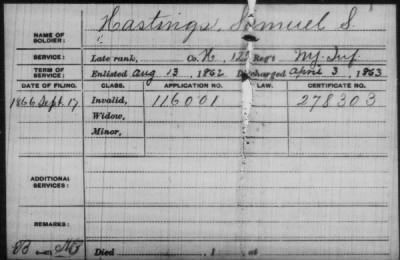 NAME OF SOLDIER: Hastings, Samuel S.
SERVICE: Late rank, Co. H, 12 Reg't NJ. Inf.
TERM OF SERVICE: Enlisted Aug 13, 1862 Discharged April 3, 1863
DATE OF FILING. CLASS. APPLICATION NO. LAW. CERTIFICATE NO.
1866 Sept. 17 Invalid, 116001 278303
Widow,
Minor,
ADDITIONAL SERVICES:
REMARKS:
Died , 1 , at